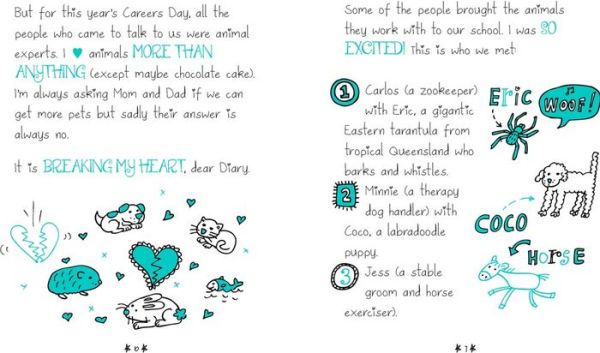 But for this year's Careers Day, all the
people who came to talk to us were animal
experts. I ♥ animals MORE THAN
ANYTHING (except maybe chocolate cake).
I'm always asking Mom and Dad if we can
get more pets but sadly their answer is
always no.
It is BREAKING MY HEART, dear Diary.
6
Some of the people brought the animals
they work with to our school. I was SO
EXCITED! This is who we met:
1 Carlos (a zookeeper)
with Eric, a gigantic
Eastern tarantula from
tropical Queensland who
barks and whistles.
2 Minnie (a therapy
dog handler) with
Coco, a labradoodle
puppy.
3 Jess (a stable
groom and horse
exerciser).
Eric
WOOF!
COCO
HOrSE
7